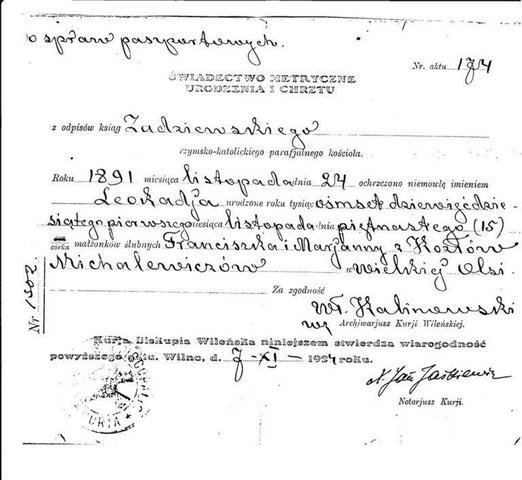 o spraw paszportowych.
Nr. aktu 174
ŚWIADECTWO METRYCZNE
URODZENIA I CHRZTU
z odpisów ksiąg Żudziewskiego
rzymsko-katolickiego parafjalnego kościoła.
Roku 1891 miesiąca listopada dnia 24 ochrzczono niemowlę imieniem
Leokadja urodzone roku tysiąc ośmset dziewięćdzie-
siątego pierwszego miesiąca listopada dnia piętnastego (15)
córka małżonków ślubnych Franciszka i Marjanny z Kozłów
Michalewiczów w Wielkiej Olsi
Za zgodność
Wł. Kalinowski
Archiwarjusz Kurji Wileńskiej.
Nr
Kurja Biskupia Wileńska niniejszem stwierdza wiarogodność
powyższego aktu. Wilno, d. 7-XI-1934 roku.
Jan
Notarjusz Kurji.